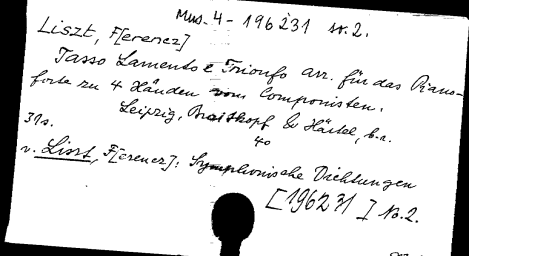 Mus. 4 - 196231 nr. 2.
Liszt, F[erencz]
Tasso Lamento e Trionfo arr. für das Piano-
forte zu 4 Händen vom Componisten.
Leipzig, Breitkopf & Härtel, é.n.
31s. 4°
v. Liszt, F[erencz]: Symphonische Dichtungen
[196231] No. 2.